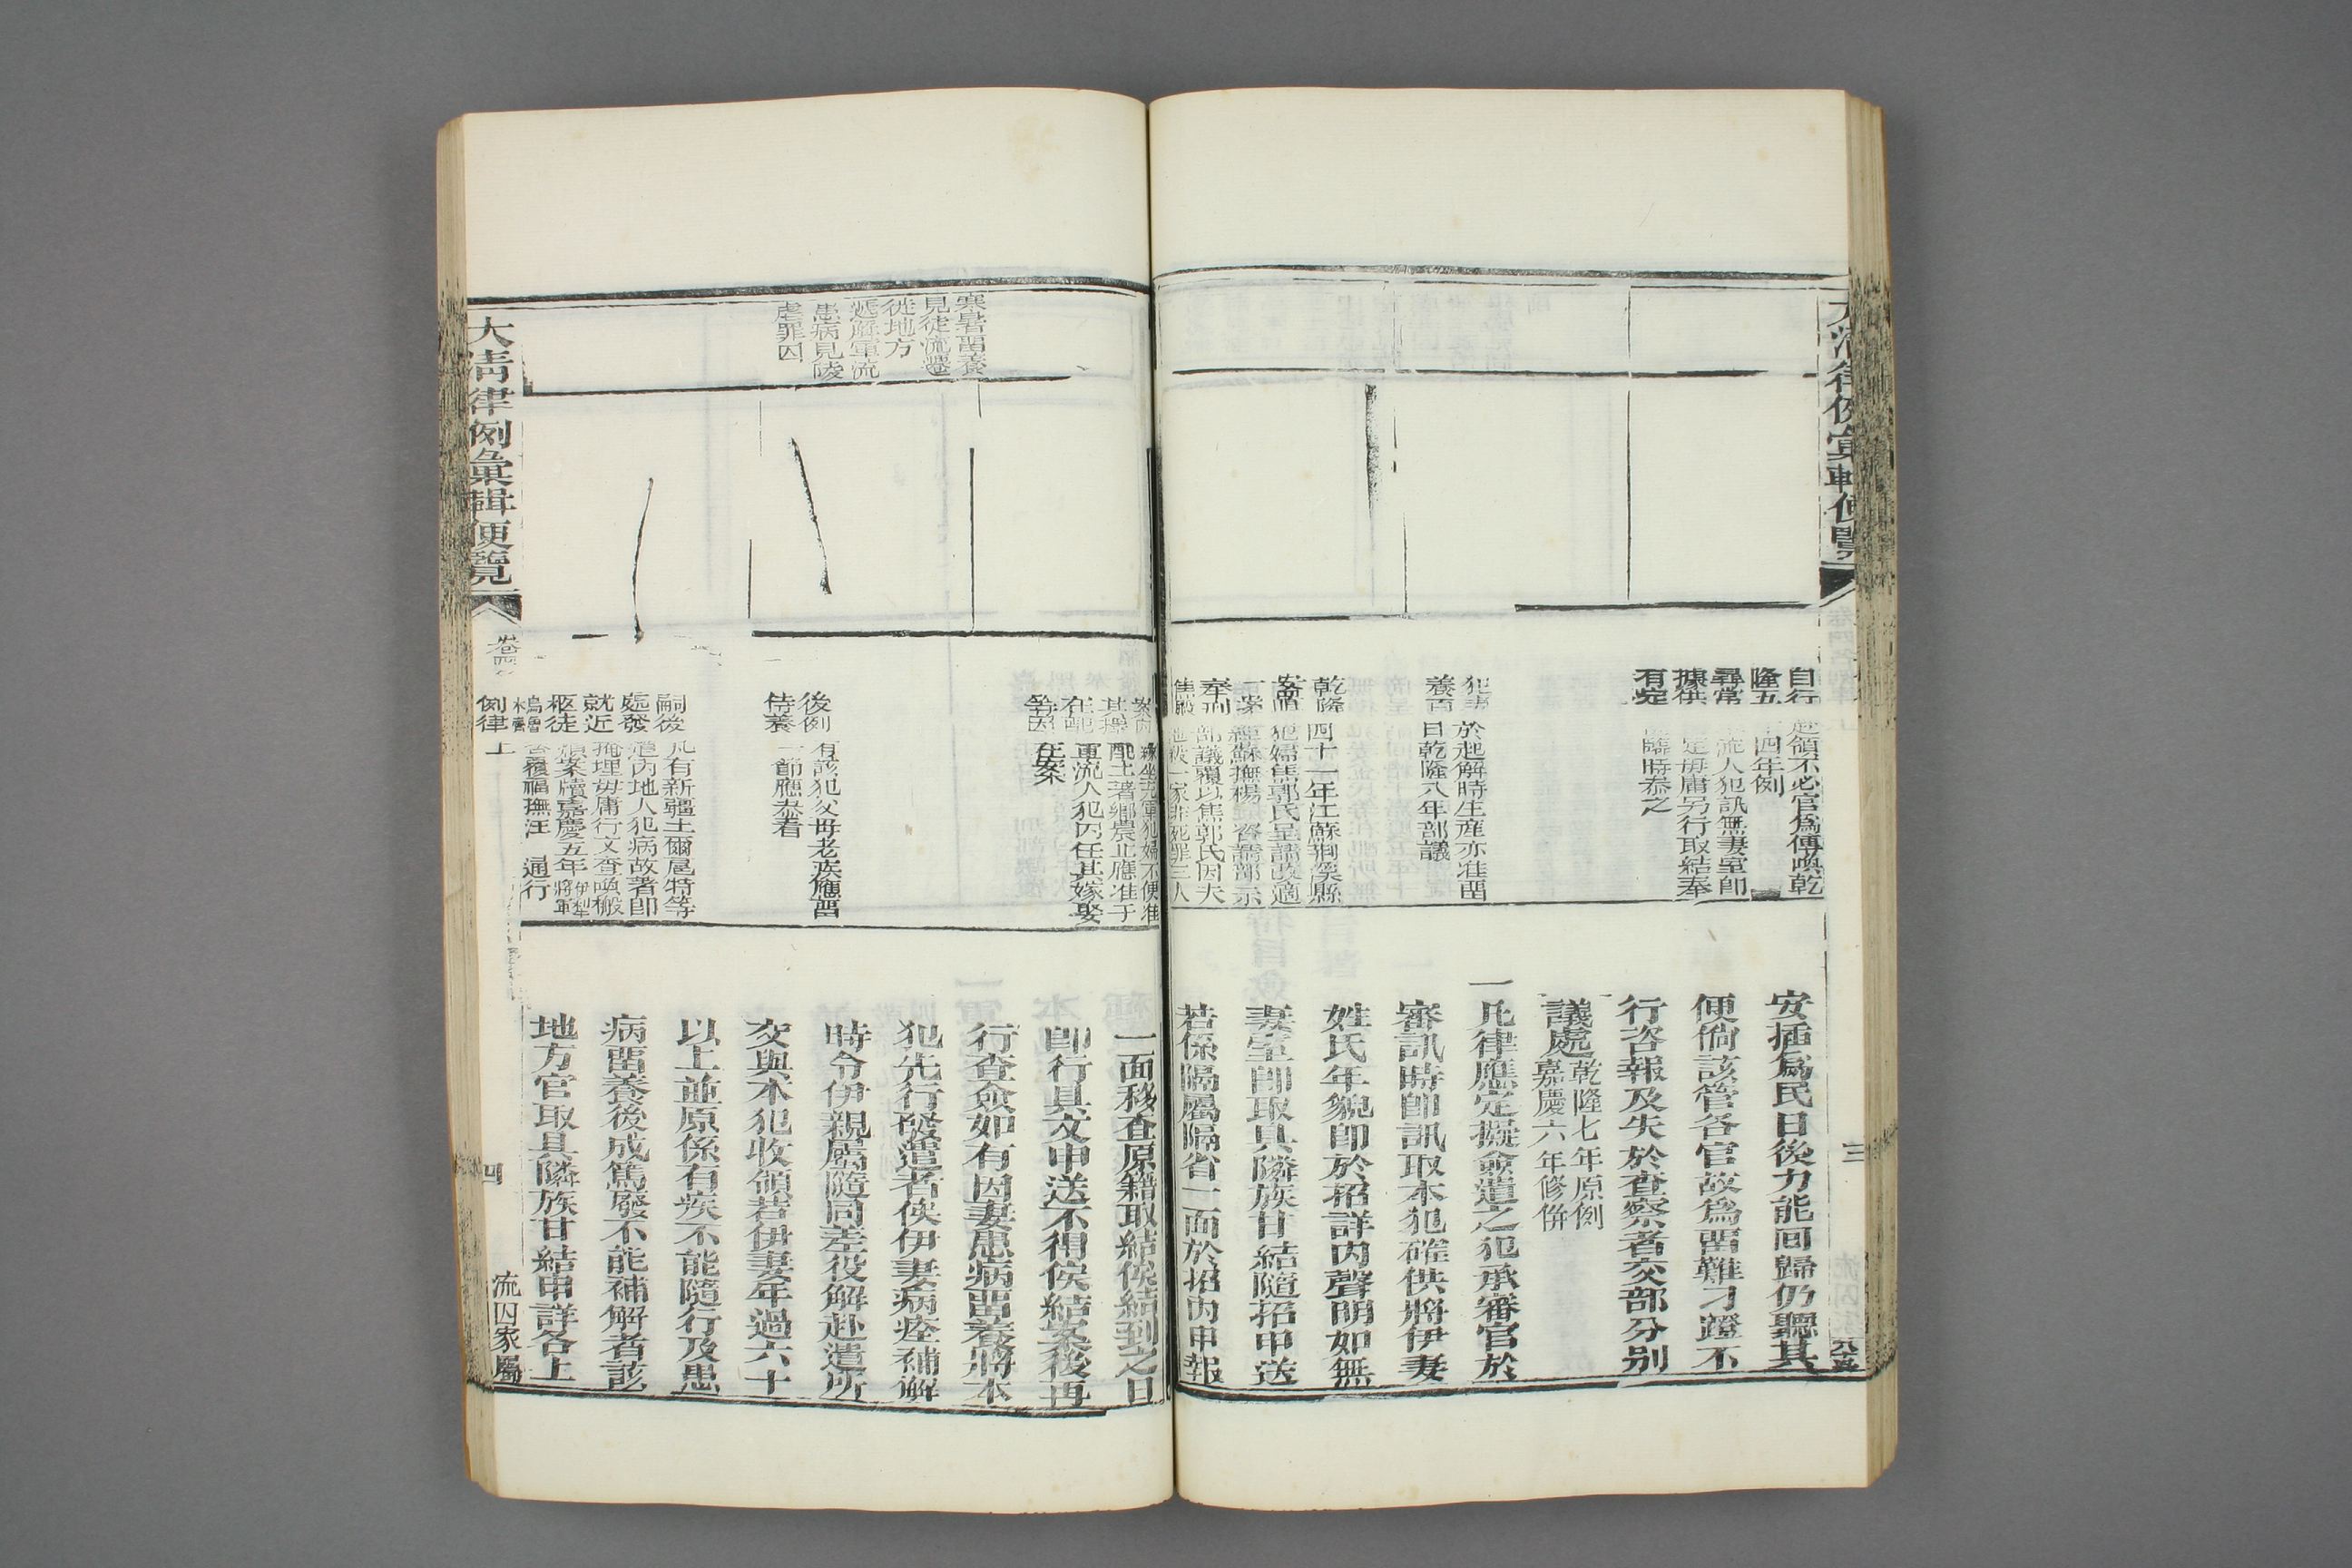 大清律例彙輯便覽
自行
隆五
尋常
據供
有定
赴領不必官爲傳喚乾
十四年例
流人犯訊無妻室即
定毋庸另行取結奉
臨時恭之
犯事
養百
於起解時生產亦准畱
日乾隆八年部議
乾隆四十一年江蘇荆溪縣
安置犯婦焦郭氏呈請改適
一案經蘇撫楊咨請部示
奉刑部議覆以焦郭氏因夫
焦嚴池殺一家非死罪三人
安插爲民日後力能回歸仍聽其
便倘該管各官故爲畱難刁蹬不
行咨報及失於查察者交部分别
議處乾隆七年原例
嘉慶六年修併
一凡律應定擬僉遣之犯承審官於
審訊時即訊取本犯確供將伊妻
姓氏年貌即於招詳内聲明如無
妻室即取具隣族甘結隨招申送
若係隔屬隔省一面於招内申報
三
寒暑畱養
見徒流遷
徙地方
遞解軍流
患病見陵
虐罪囚
案内緣坐充軍犯婦不便准
其擇配土著鄉農止應准于
在配軍流人犯内任其嫁娶
等因在案
後例有該犯父母老疾應畱
侍養一節應恭看
嗣後凡有新疆土爾扈特等
處發遣内地人犯病故著即
就近掩埋毋庸行文查喚搬
柩徒煩案牘嘉慶五年伊犁
將軍
烏魯
木齊
咨覆福撫汪 通行
一面移查原籍取結俟結到之日
即行具文申送不得俟結案後再
行查僉如有因妻患病畱養將本
犯先行發遣者俟伊妻病痊補解
時令伊親屬隨同差役解赴遣所
交與本犯收領若伊妻年過六十
以上並原係有疾不能隨行及患
病畱養後成篤廢不能補解者該
地方官取具隣族甘結申詳各上
大清律例彙輯便覽
卷四
例律上
四
流囚家屬